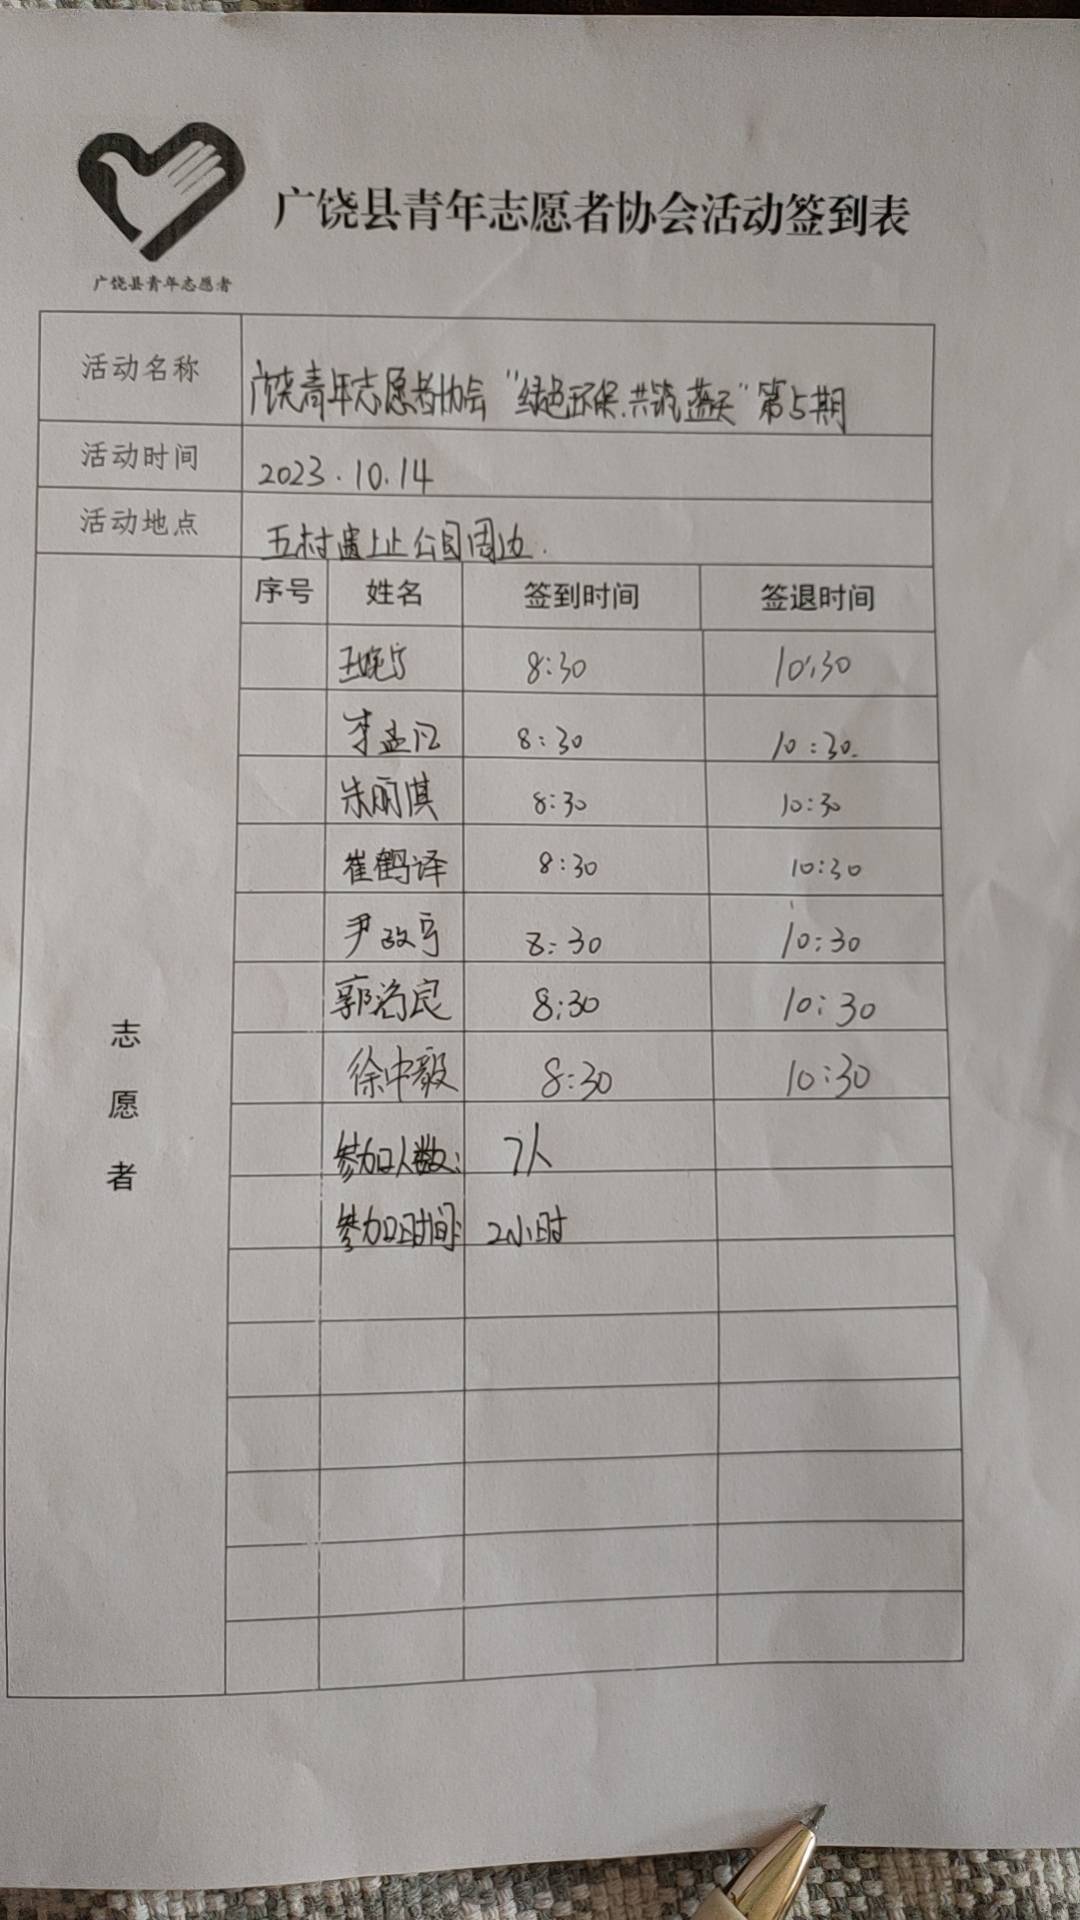 广饶县青年志愿者协会活动签到表
广饶县青年志愿者
活动名称 广饶青年志愿者协会“绿色环保.共筑蓝天”第5期
活动时间 2023.10.14
活动地点 五村遗址公园周边.
志愿者
序号 姓名 签到时间 签退时间
8:30 10:30
李孟 8:30 10:30.
朱丽淇 8:30 10:30
崔鹤译 8:30 10:30
尹政 8:30 10:30
郭洺良 8:30 10:30
徐中毅 8:30 10:30
参加人数: 7人
参加时间: 2小时